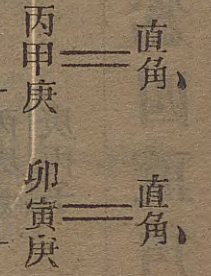 丙甲庚＝直角、
卯寅庚＝直角、